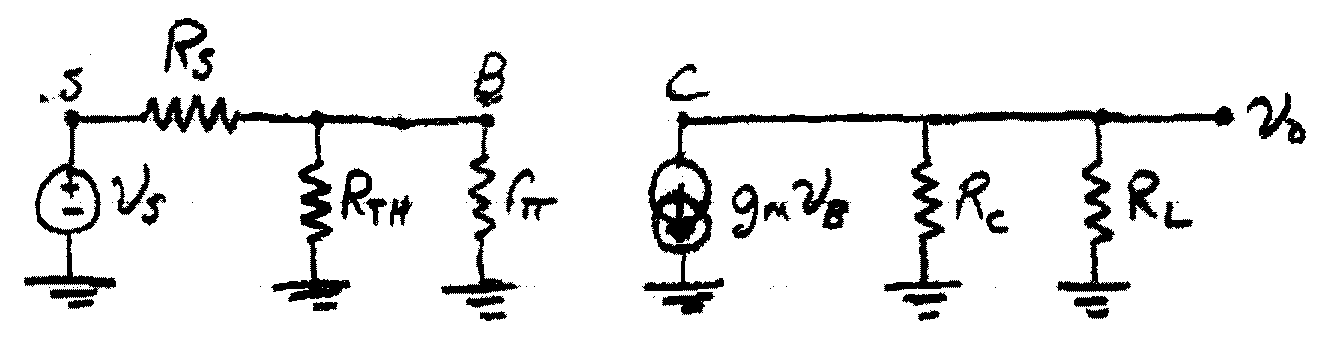 S R_S B C v_o
+ - v_S R_TH r_π g_m v_B R_C R_L